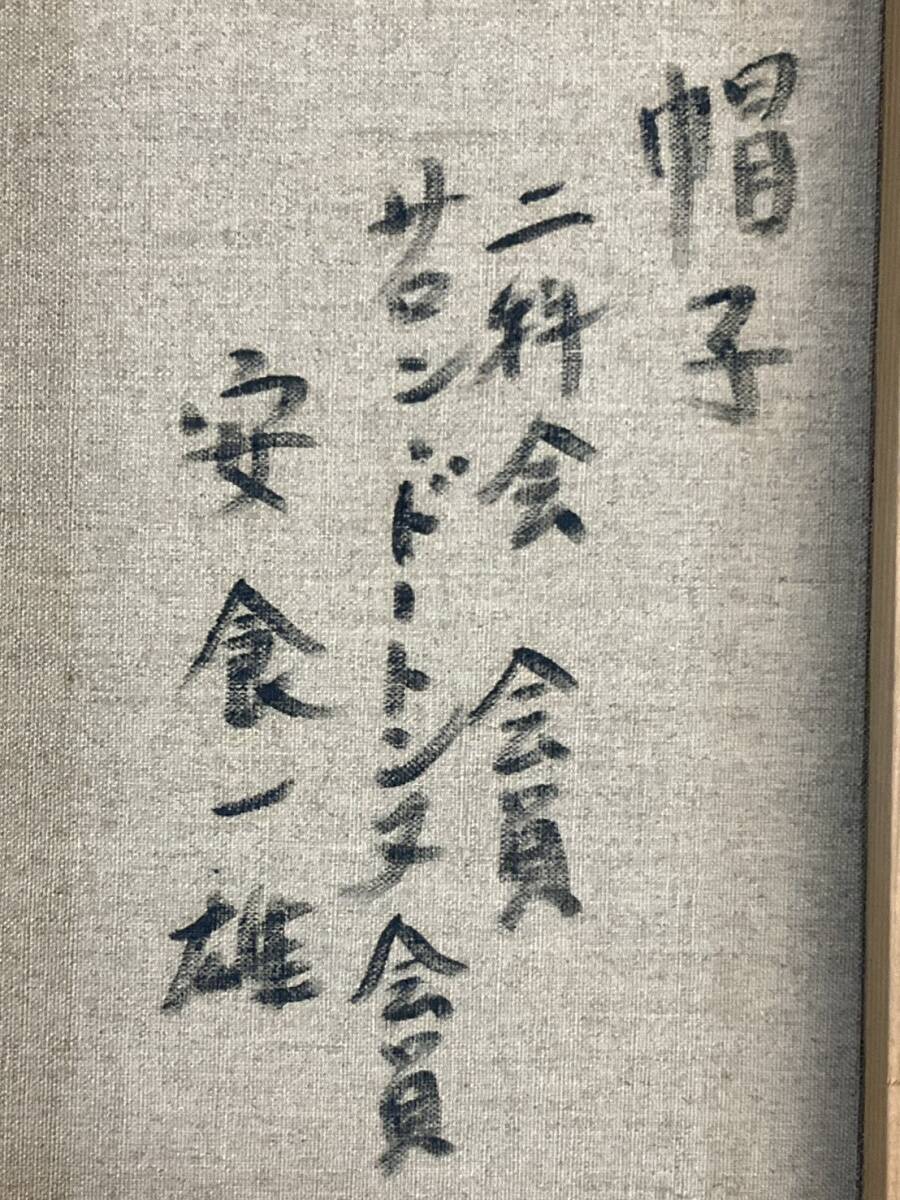 帽子
二科会 会員
サロンドートンヌ会員
安食一雄